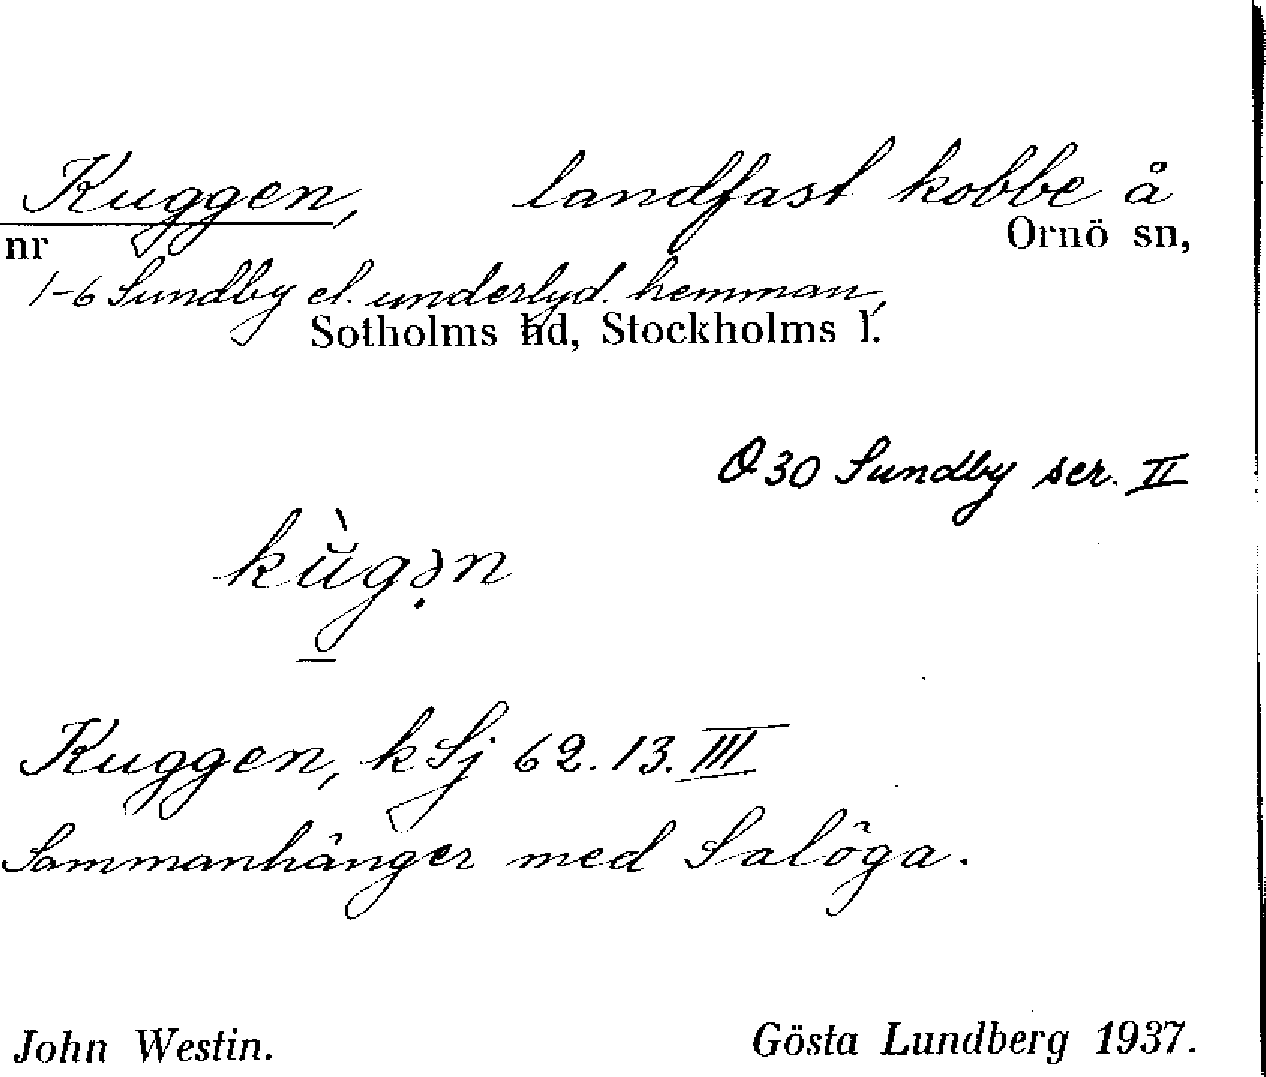 Kuggen, landfast kobbe å
nr Ornö sn,
1-6 Sundby el. underlyd. hemman,
Sotholms hd, Stockholms l.
O 30 Sundby ser. II
kùgə̣n
Kuggen, k Sj 62.13.III
Sammanhänger med Salöga.
John Westin. Gösta Lundberg 1937.